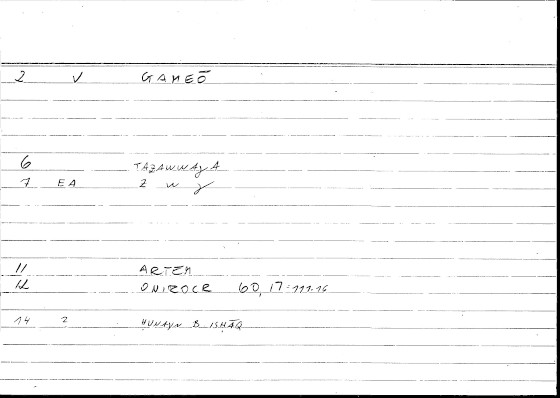 2 V GAMEŌ
6 TAZAWWAJA
7 EA Z W J
11 ARTEM
12 ONIROCR 60,17:111.16
14 2 HUNAYN B ISḤĀQ